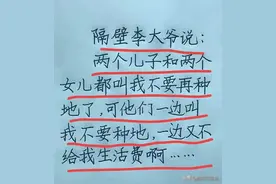 隔壁李大爷说:
两个儿子和两个
女儿都叫我不要再种
地了,可他们一边叫
我不要种地,一边又不
给我生活费啊……